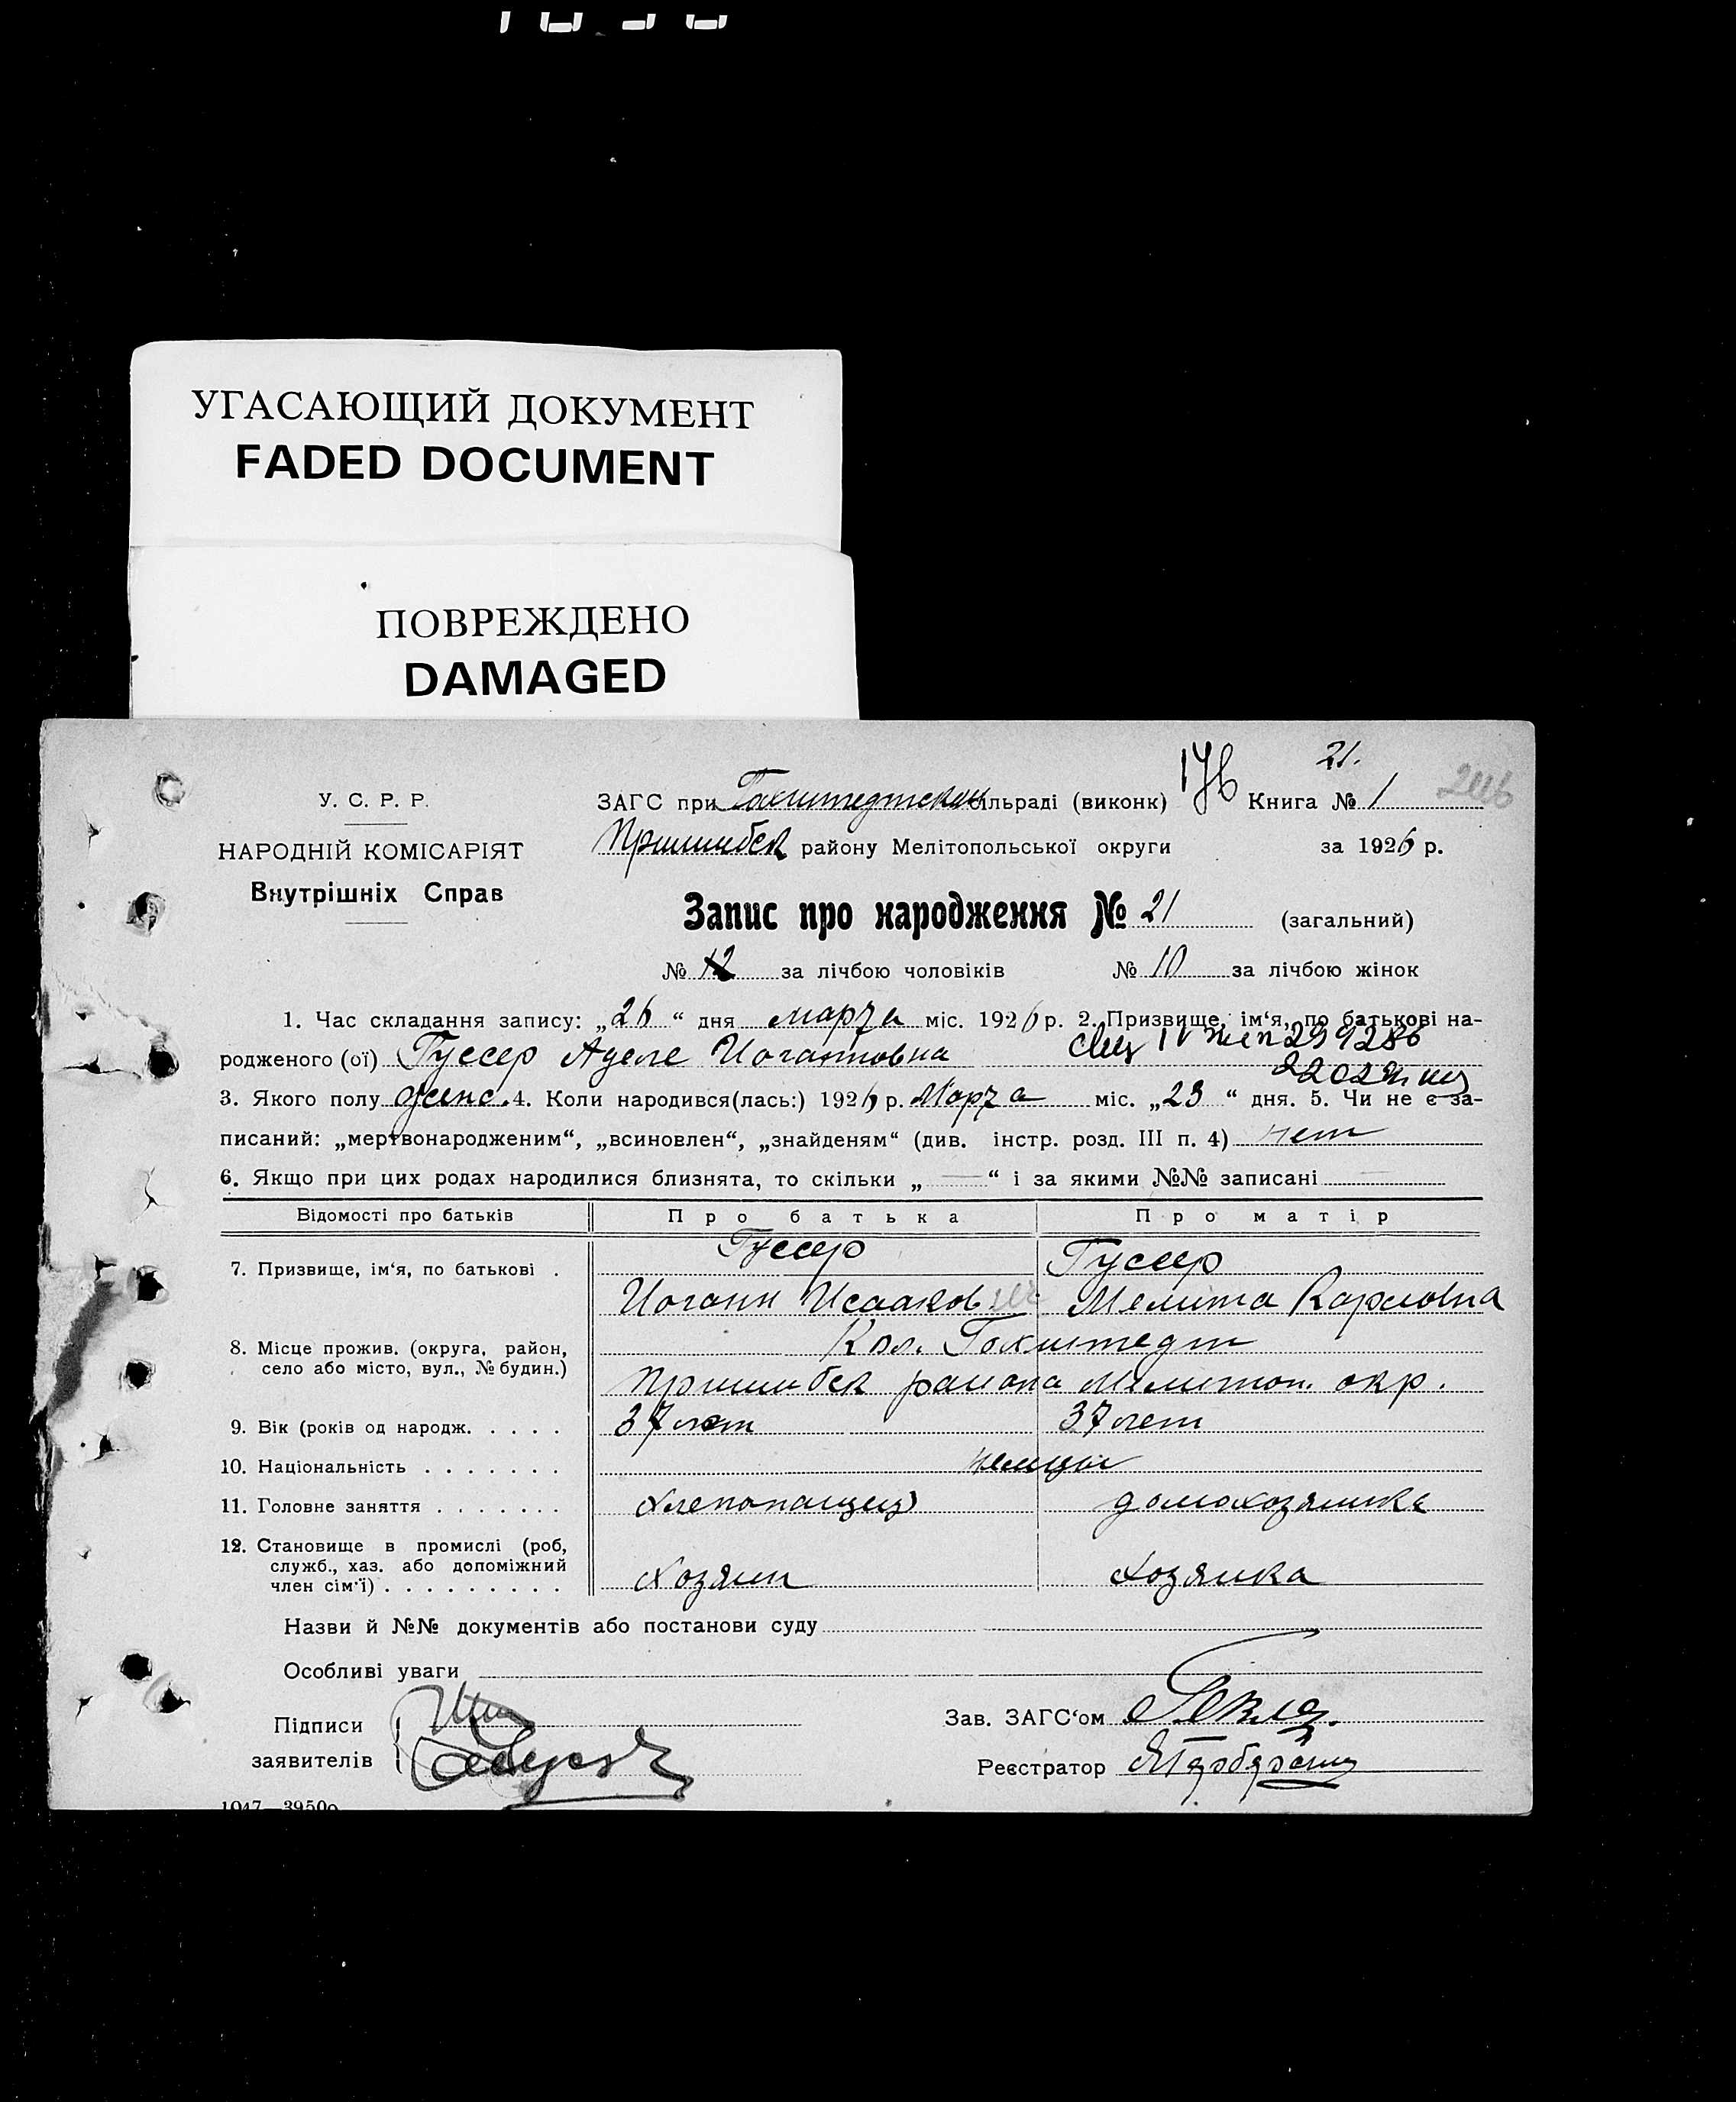 УГАСАЮЩИЙ ДОКУМЕНТ
FADED DOCUMENT
ПОВРЕЖДЕНО
DAMAGED
21.
У. С. Р. Р.
НАРОДНІЙ КОМІСАРІЯТ
Внутрішніх Справ
ЗАГС при Гохштедтской сільраді (виконк) 176 Книга № 1
Пришибск району Мелітопольської округи за 1926 р.
Запис про народження № 21 (загальний)
№ 12 за лічбою чоловіків № 10 за лічбою жінок
1. Час складання запису: „26“ дня марта міс. 1926 р. 2. Призвище, ім‘я, по батькові на-
родженого (ої) Гуссер Аделе Иогановна
3. Якого полу женс. 4. Коли народився(лась:) 1926 р. Марта міс. „23“ дня. 5. Чи не є за-
писаний: „мертвонародженим“, „всиновлен“, „знайденям“ (див. інстр. розд. III п. 4) нет
6. Якщо при цих родах народилися близнята, то скільки „ — “ і за якими №№ записані —
Відомості про батьків Про батька Про матір
7. Призвище, ім‘я, по батькові . Гуссер Гуссер
Иоганн Исааков Мелита Карловна
8. Місце прожив. (округа, район, село або місто, вул., № будин.) Кол. Гохштедт
Пришибск района Мелитоп. окр.
9. Вік (років од народж. . . . . 37 лет 37 лет
10. Національність . . . . . . . немцы
11. Головне заняття . . . . . . . хлепопашец домохозяйка
12. Становище в промислі (роб, служб., хаз. або допоміжний член сім‘ї) . . . . . . . . . хозяин хозяйка
Назви й №№ документів або постанови суду
Особливі уваги
Підписи
заявителів
Зав. ЗАГС‘ом
Реєстратор
1947—3950о